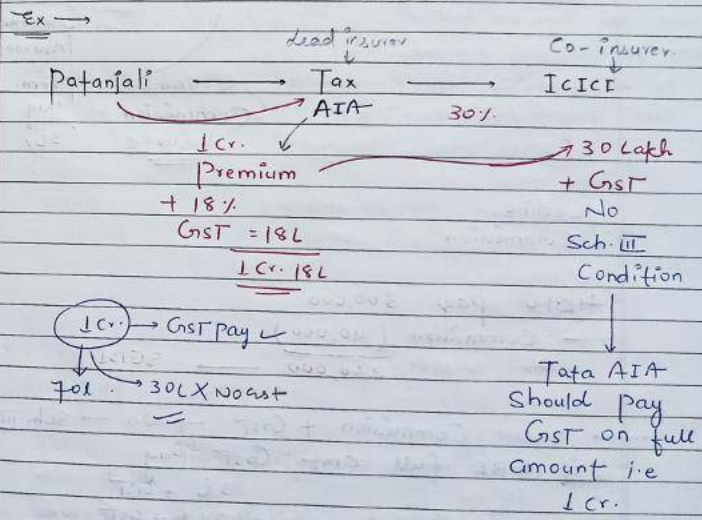 Ex →
Lead insurer
Co-insurer
Patanjali → Tax → ICICI
AIA
30%
1 Cr.
Premium
30 Lakh
+ GST
+ 18%
No
GST = 18L
Sch. III
1 Cr. 18L
Condition
1 Cr. → GST pay ✓
70L. 30L X No Gst
Tata AIA
Should pay
GST on full
amount i.e
1 Cr.